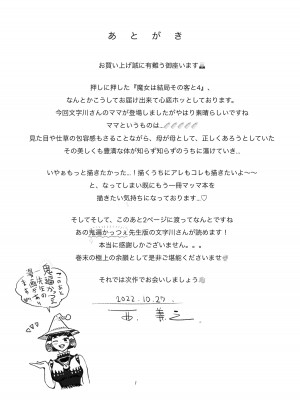 あとがき
お買い上げ誠に有難う御座います
押しに押した『魔女は結局その客と4』、
なんとかこうしてお届け出来て心底ホッとしております。
今回文字川さんのママが登場しましたがやはり素晴らしいですね
ママというものは…
見た目や仕草の包容感もさることながら、母が母として、正しくあろうとしていた
その美しくも豊満な体が知らず知らずのうちに蕩けていき…
いやぁもっと描きたかった…！描くうちにアレもコレも描きたいよ〜
と、なってしまい既にもう一冊マッマ本を
描きたい気持ちになっております…♡
そしてそして、このあと2ページに渡ってなんとですね
あの鬼遍かっつぇ先生版の文字川さんが読めます！
本当に感謝しかございません。。。
巻末の極上の余韻として是非ご堪能くださいませ
それでは次作でお会いしましょう
2022.10.27
このあと
鬼遍かっつぇ
先生の
漫画が
あります